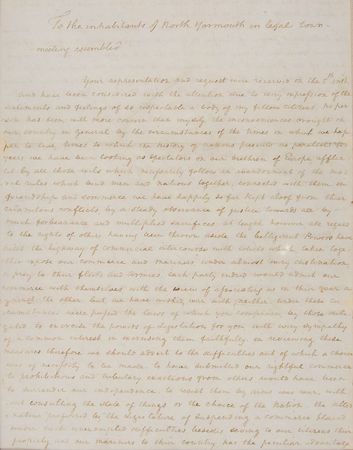 To the inhabitants of North Yarmouth in legal town-
meeting assembled
Your representation and request were received on the 8th inst.
and have been considered with the attention due to every expression of the
sentiments and feelings of so respectable a body of my fellow citizens. no per-
son has seen with more concern than myself the inconveniences brought on
our country in general by the circumstances of the times in which we hap-
pen to live: times to which the history of nations presents no parallel. for
years we have been looking as spectators on our brethren of Europe afflict-
ed by all those evils which necessarily follow an abandonment of the mo-
ral rules which bind men and nations together. connected with them in
friendship and commerce we have happily so far kept aloof from their
calamitous conflicts by a steady observance of justice towards all by
much forbearance and multiplied sacrifices. at length however all regard
to the rights of others having been thrown aside, the belligerent Powers have
beset the highway of commercial intercourse with edicts which, taken toge-
ther expose our commerce and mariners under almost every destination
a prey to their fleets and armies. each party indeed would admit our
commerce with themselves with the view of associating us in their war a-
gainst the other. but we have wished war with neither. under these cir-
cumstances were passed the laws of which you complain, by those dele-
gated to exercise the powers of legislation for you, with every sympathy
of a common interest in exercising them faithfully. in reviewing these
measures therefore we should advert to the difficulties out of which a choice
was of necessity to be made. to have submitted our rightful commerce
to prohibitions and tributary exactions from others would have been
to surrender our independance. to resist them by arms was war, with-
out consulting the state of things or the choice of the Nation. the alter-
native preferred by the legislature of suspending a commerce placed
under such unexampled difficulties besides saving to our citizens their
property and our mariners to their country has the peculiar advantage